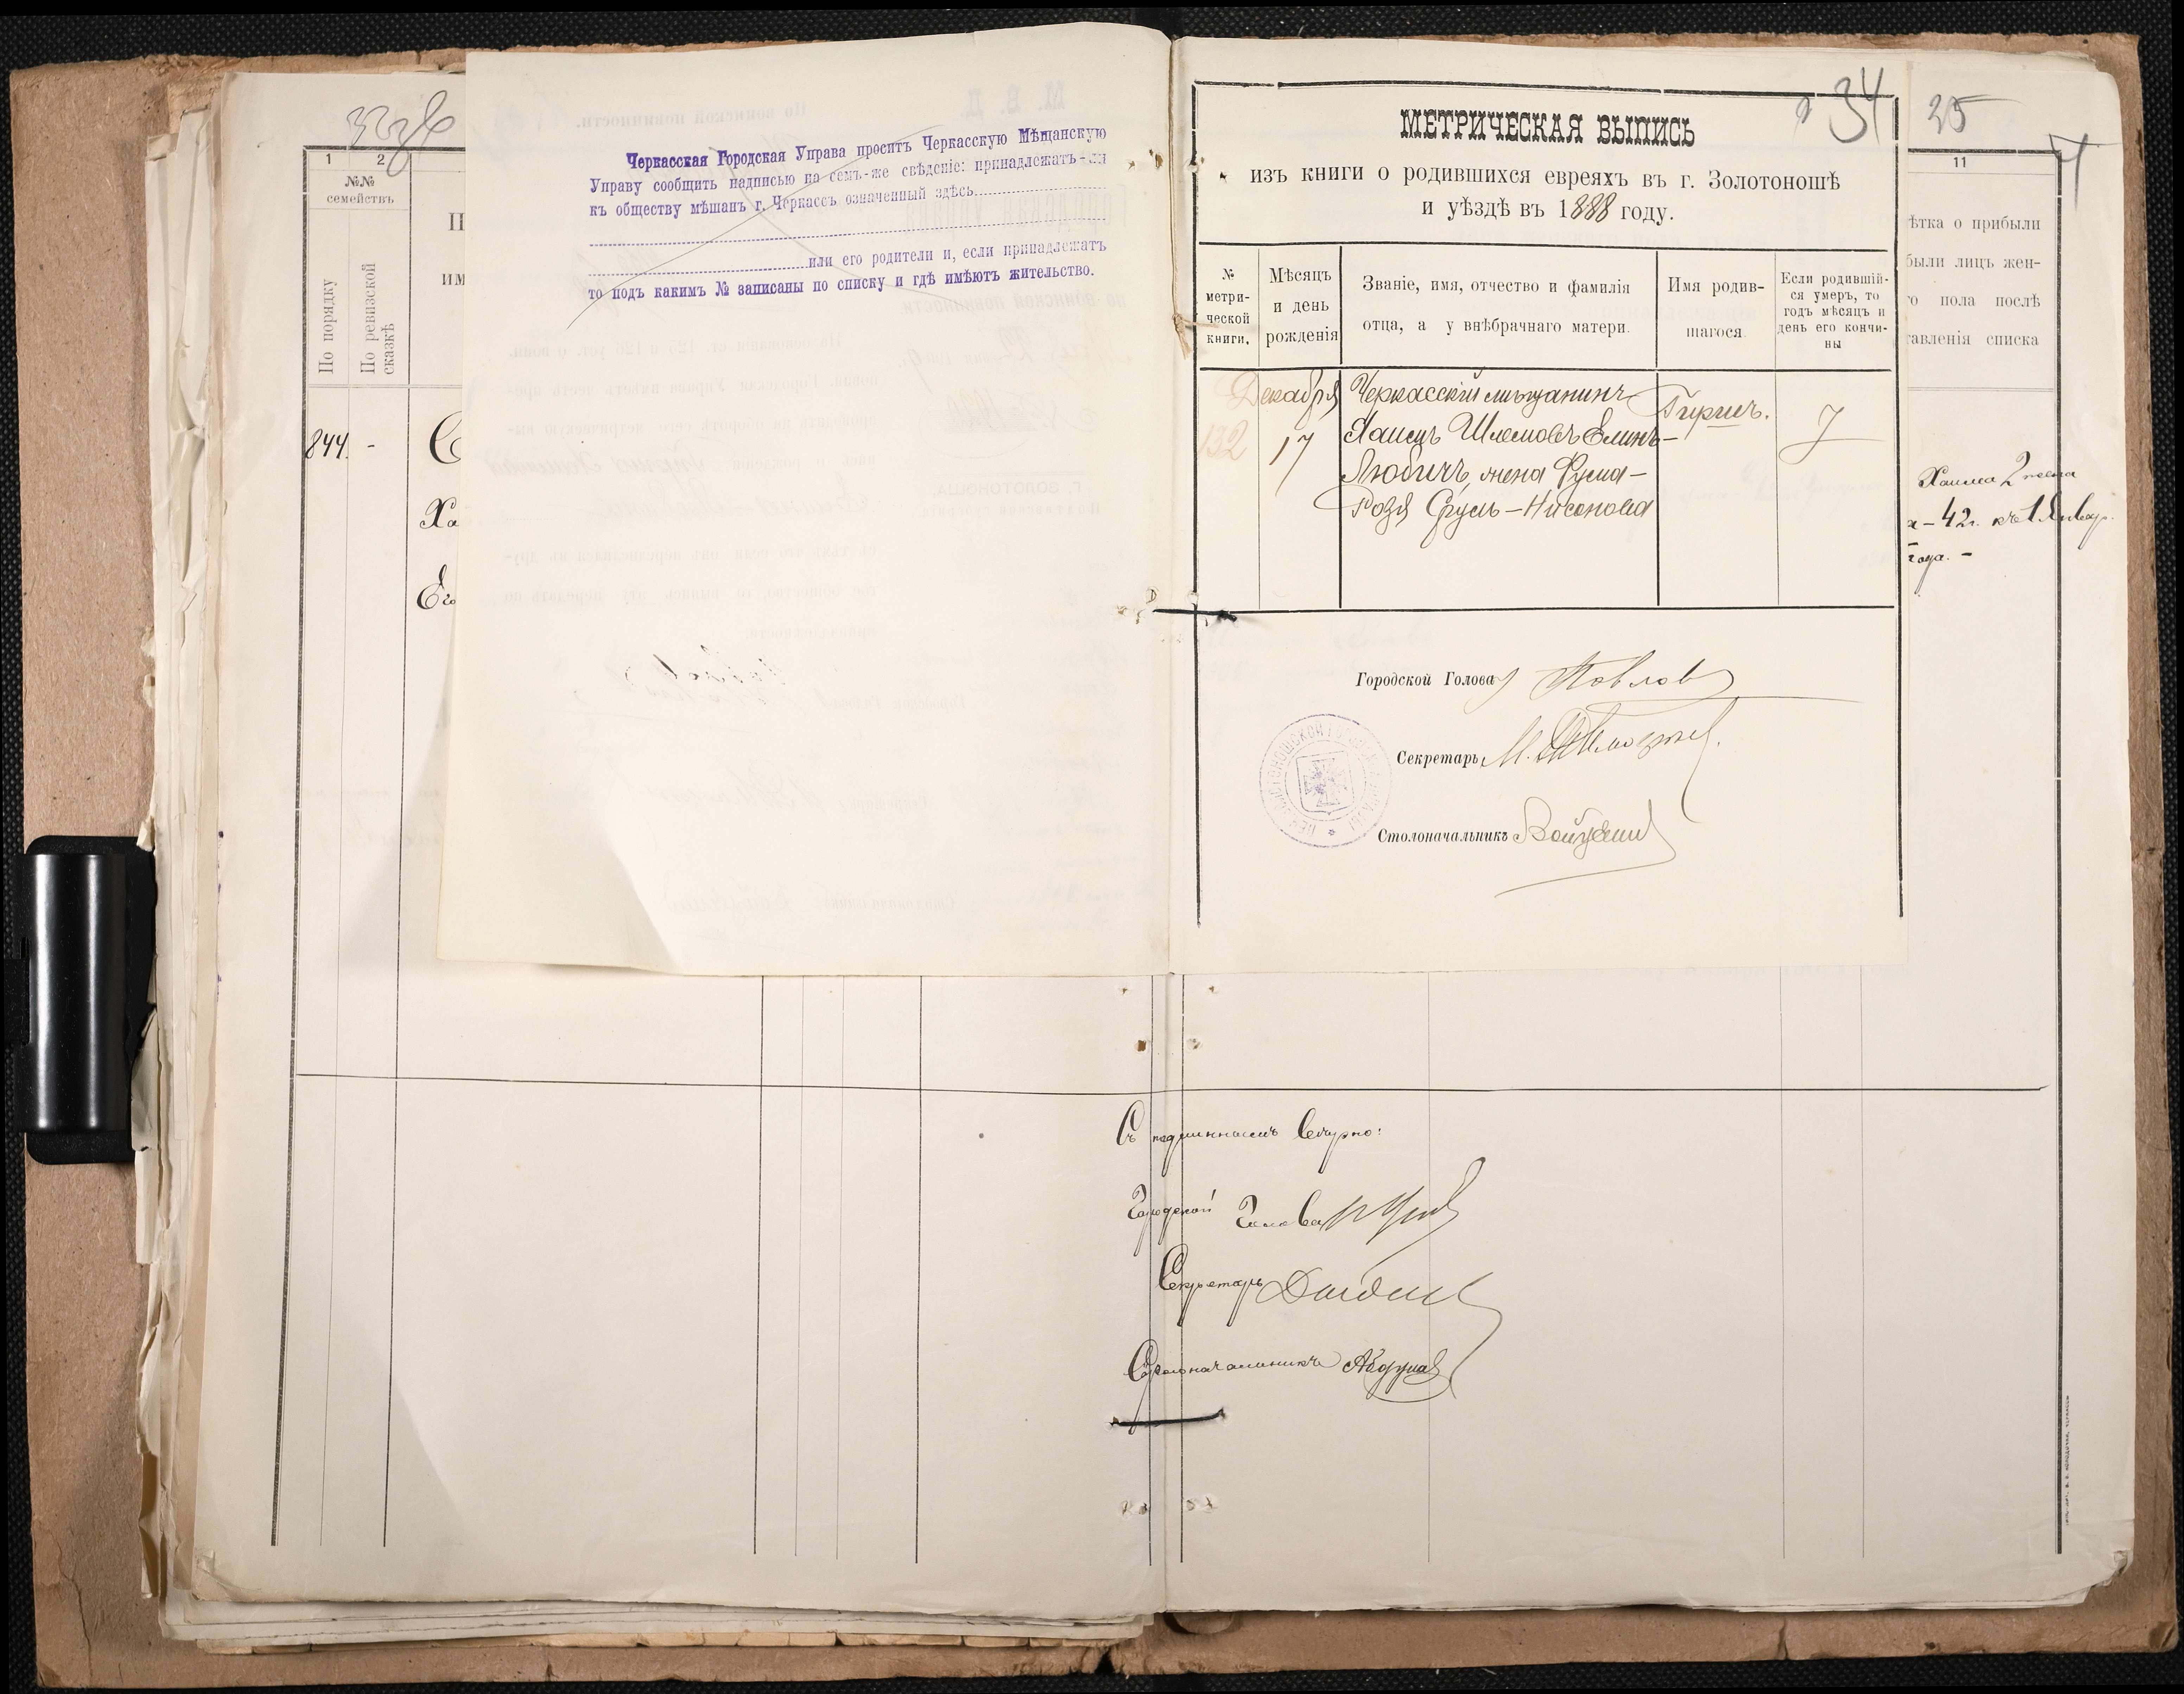 1
2
№№
семействъ
По порядку
По ревизской
сказкѣ
844. -
Черкасская Городская Управа проситъ Черкасскую Мѣщанскую
Управу сообщить надписью на семъ-же свѣдѣніе: принадлежатъ-ли
къ обществу мѣщанъ г. Черкассъ означенный здѣсь
или его родители и, если принадлежатъ
то подъ какимъ № записаны по списку и гдѣ имѣютъ жительство.
34
МЕТРИЧЕСКАЯ ВЫПИСЬ
изъ книги о родившихся евреяхъ въ г. Золотоношѣ
и уѣздѣ въ 1888 году.
№
метри-
ческой
книги.
Мѣсяцъ
и день
рожденія
Званіе, имя, отчество и фамилія
отца, а у внѣбрачнаго матери.
Имя родив-
шагося
Если родившій-
ся умеръ, то
годъ мѣсяцъ и
день его кончи-
ны
132
Декабря
17
Черкасскій мѣщанинъ
Хаимъ Шлемовъ Елинъ-
Любичъ, жена Фрума-
Розя Сруль-Нисонова
Гиршъ.
Городской Голова Павлов
Секретарь
Столоначальникъ
25
11
ѣтка о прибыли
были лицъ жен-
го пола послѣ
тавленія списка
Хаима 2 жена
а - 42 г. къ 1 Январ.
года. -
Съ подлиннымъ вѣрно:
Городской Голова
Секретарь
Столоначальникъ